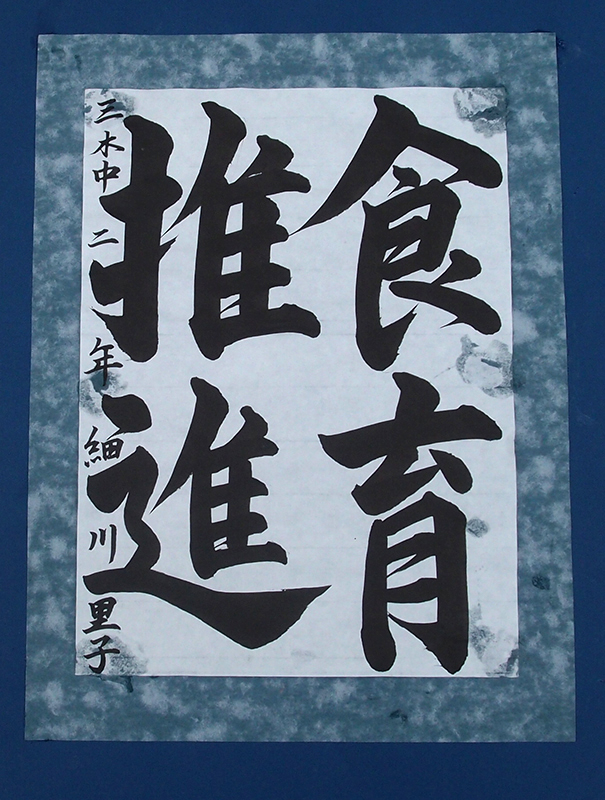 食育
推進
三木中二年 細川里子